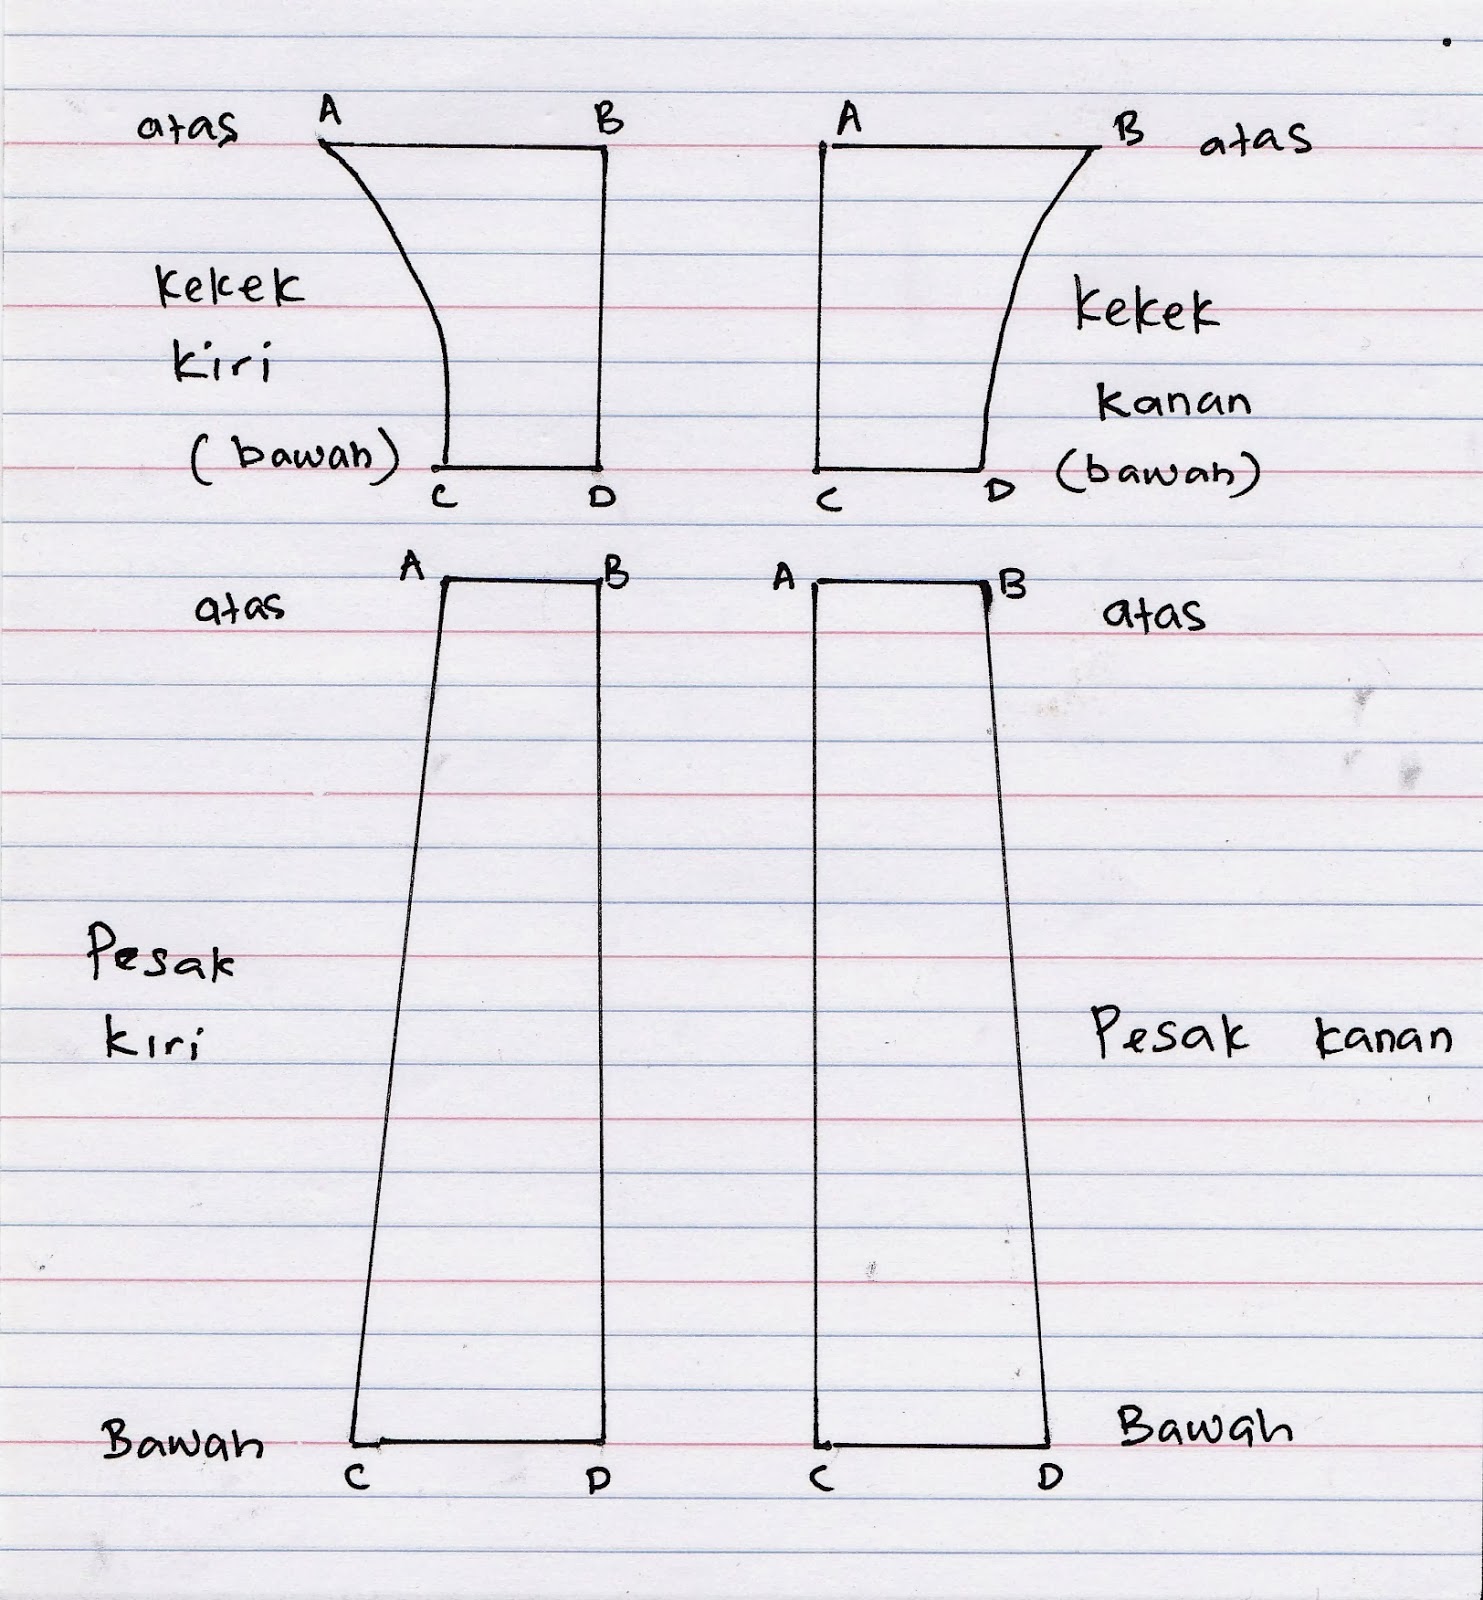 A B A B
atas atas
Kekek Kekek
kiri kanan
(bawah) (bawah)
C D C D
A B A B
atas atas
Pesak
kiri
Pesak kanan
Bawah Bawah
C D C D